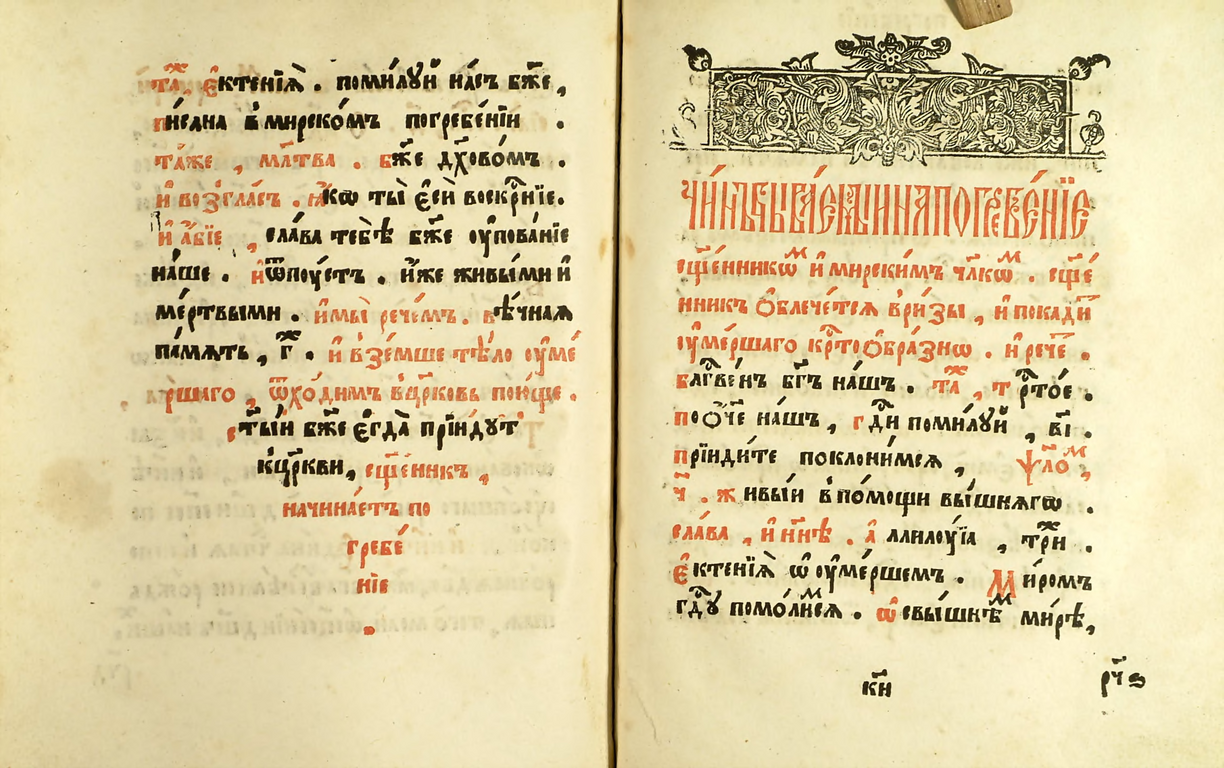 та́, є҆ктенїѧ̀ . поми́лꙋй на́съ бж҃е ,
пи́сана в̾мирско́мъ погребе́нїи .
та́же , мл҃тва . бж҃е дх҃ово́мъ .
и҆ возгла́съ . ꙗ҆́кѡ ты̀ є҆сѝ воскрн҃їе .
и҆ а҆́бїе , сла́ва тебѣ̀ бж҃е ᲂу҆пова́нїе
на́ше . и҆ ѿпꙋ́стъ . и҆́же живы́ми и҆
ме́ртвыми . и҆ мы̀ рече́мъ . вѣ́чнаѧ
па́мѧть , г҃ . и҆ взе́мше тѣ́ло ᲂу҆ме́
ршаго , ѿхо́димъ в̾цр҃ковь пою́ще .
ст҃ы́и бж҃е є҆гда̀ прїи́дꙋт
к̾цр҃кви , сщ҃е́нникъ ,
начина́етъ по
гребе́
нїе
.
чи́нъ быва́емыи на погребе́нїе
сщ҃е́нникѡм и҆ мирски́мъ чл҃кѡм . сщ҃е́
нникъ ѻ҆блече́тсѧ в̾ри́зы , и҆ покади́тъ
ᲂу҆ме́ршаго крⷭ҇тоѻбра́знѡ . и҆ рече́ .
блгⷭ҇ве́нъ бг҃ъ на́шъ . та́ , трⷭ҇то́е .
поѻ҆́че на́шъ , гдⷭ҇и поми́лꙋй , в҃і .
прїиди́те поклони́мсѧ , ѱало́м ,
ч҃ . живы́и в̾по́мощи вы́шнѧгѡ .
сла́ва , и҆ ны́нѣ . а҆ллилꙋ́їа , три́ .
є҆ктенїѧ̀ ѡ҆ ᲂу҆ме́ршемъ . ми́ромъ
гдⷭ҇ꙋ помо́лимсѧ . ѡ҆ свы́шнѣм ми́рѣ ,
к҃и рч҃ѕ